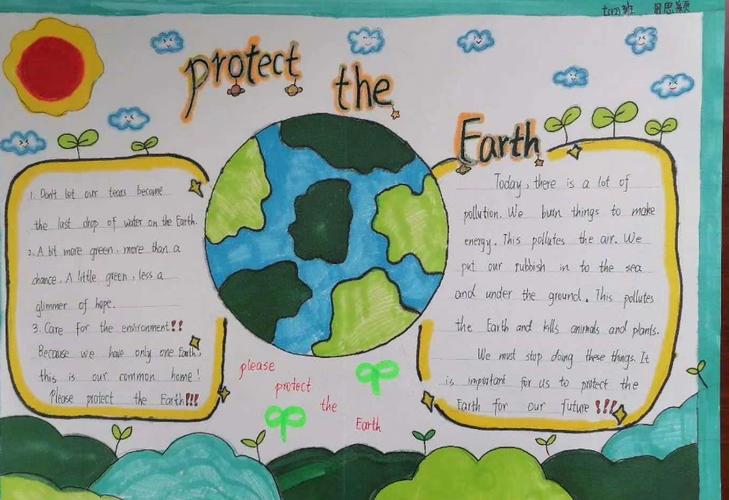 周思颖
protect the
Earth
1. Don't let our tears become
the last drop of water on the Earth.
2. A bit more green, more than a
chance. A little green, less a
glimmer of hope.
3. Care for the environment!!
Because we have only one Earth,
this is our common home!
Please protect the Earth!!!
Today, there is a lot of
pollution. We burn things to make
energy. This pollutes the air. We
put our rubbish in to the sea
and under the ground. This pollutes
the Earth and kills animals and plants.
We must stop doing these things. It
is important for us to protect the
Earth for our future !!!
please
protect
the
Earth